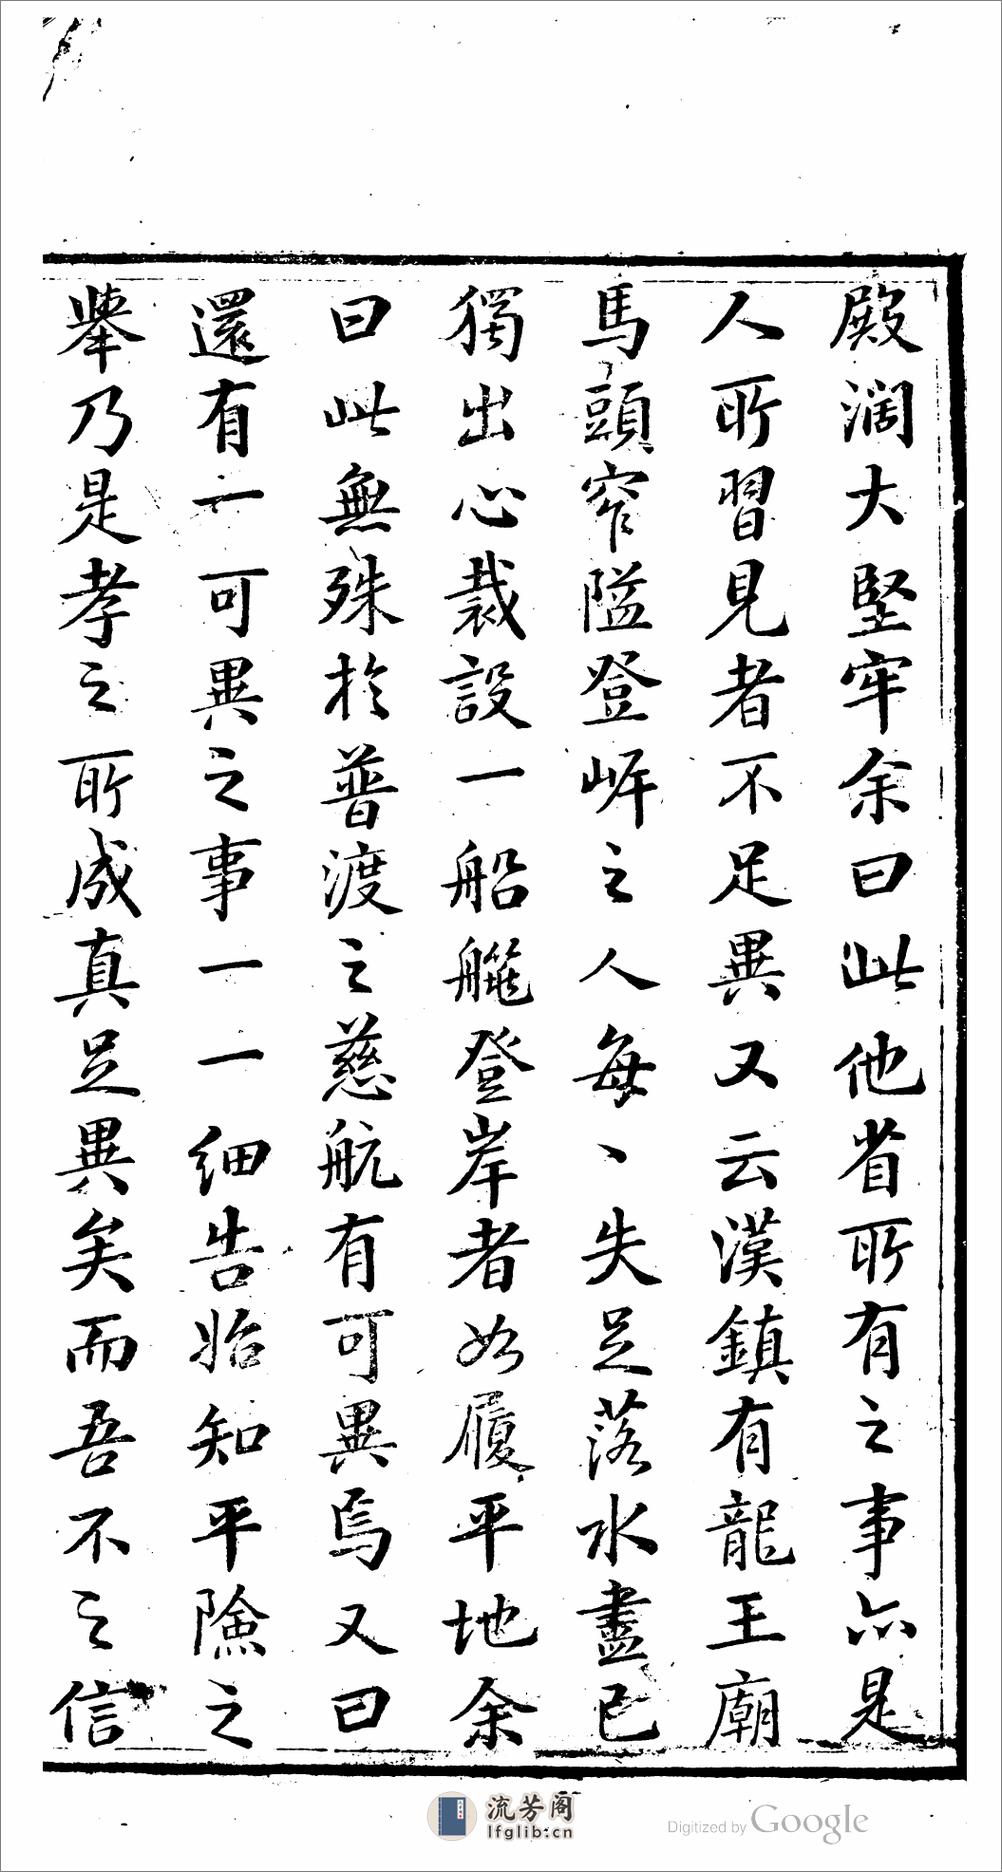 殿濶大堅牢余曰此他省所有之事亦是
人所習見者不足異又云漢鎮有龍王廟
馬頭窄隘登岍之人每丶失足落水盡已
獨出心裁設一船艇登岸者如履平地余
曰此無殊於普渡之慈航有可異焉又曰
還有一可異之事一一細告始知平險之
舉乃是孝之所成真足異矣而吾不之信
流芳阁
lfglib.cn
Digitized by Google